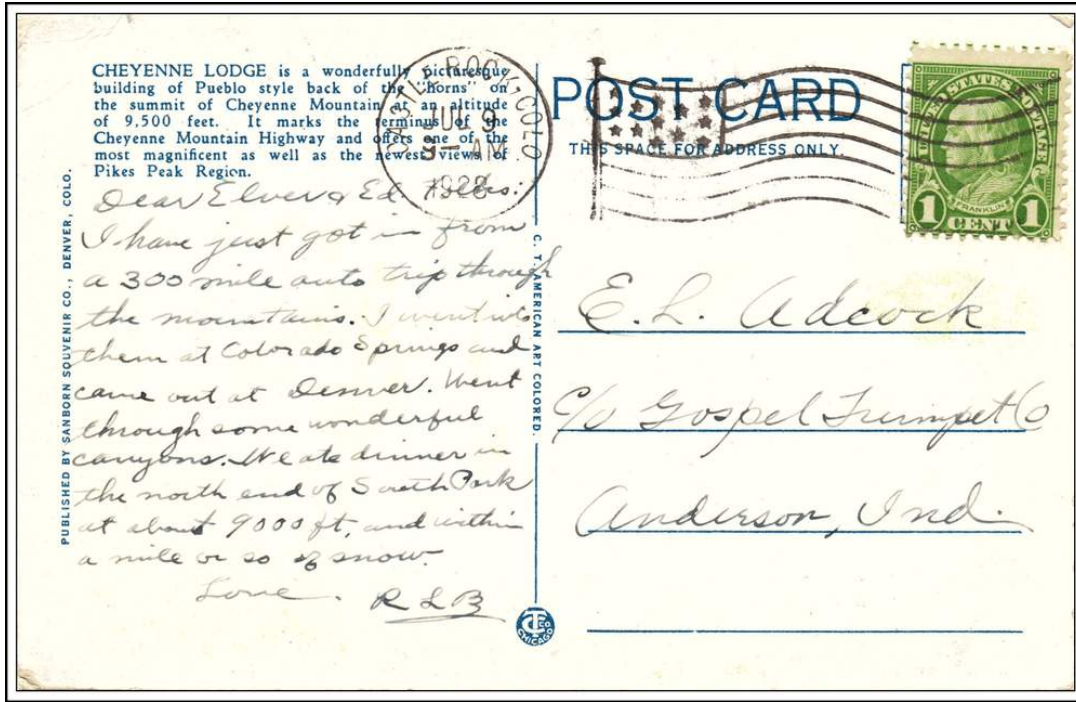 CHEYENNE LODGE is a wonderfully picturesque
building of Pueblo style back of the "horns" on
the summit of Cheyenne Mountain at an altitude
of 9,500 feet. It marks the terminus of the
Cheyenne Mountain Highway and offers one of the
most magnificent as well as the newest views of
Pikes Peak Region.
Dear Elver & Ed.
I have just got in from
a 300 mile auto trip through
the mountains. I went into
them at Colorado Springs and
came out at Denver. Went
through some wonderful
canyons. We ate dinner in
the north end of South Park
at about 9000 ft, and within
a mile or so of snow.
Love. RLB
PUBLISHED BY SANBORN SOUVENIR CO., DENVER, COLO.
C. T. AMERICAN ART COLORED.
CASTLE ROCK, COLO
JUL 9
9 - AM
1928
POST CARD
THIS SPACE FOR ADDRESS ONLY.
UNITED STATES POSTAGE
FRANKLIN
1 CENT 1
E. L. Adcock
C/o Gospel Trumpet Co
Anderson, Ind.
CT CO
CHICAGO